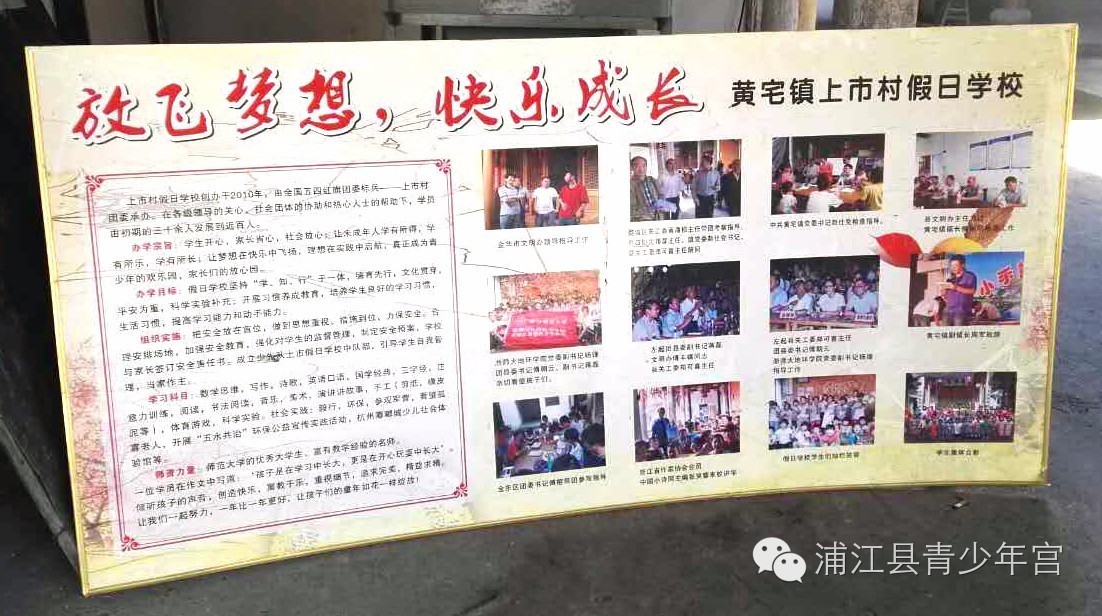 放飞梦想，快乐成长
黄宅镇上市村假日学校
上市村假日学校创办于2010年，由全国五四红旗团委标兵——上市村
团委承办。在各级领导的关心、社会团体的协助和热心人士的帮助下，学员
由初期的三十余人发展到近百人。
办学宗旨：学生开心，家长省心，社会放心；让未成年人学有所得，学
有所乐，学有所长；让梦想在快乐中飞扬，理想在实践中启航；真正成为青
少年的欢乐园，家长们的放心园。
办学目标：假日学校坚持“学、知、行”于一体，德育先行，文化贯穿，
平安为重，科学实验补充；开展习惯养成教育，培养学生良好的学习习惯，
生活习惯，提高学习能力和动手能力。
组织实施：把安全放在首位，做到思想重视、措施到位、力保安全。合
理安排场地，加强安全教育，强化对学生的监督管理，制定安全预案，学校
与家长签订安全责任书。成立少先队上市假日学校中队部，引导学生自我管
理，当家作主。
学习科目：数学思维，写作，诗歌，英语口语，国学经典，三字经，注
意力训练，阅读，书法阅读，音乐，美术，演讲讲故事，手工（剪纸，橡皮
泥等），体育游戏，科学实验。社会实践：毅行，环保，参观军营，看望孤
寡老人，开展“五水共治”环保公益宣传实践活动，杭州嘟嘟城少儿社会体
验馆等。
师资力量：师范大学的优秀大学生，富有教学经验的名师。
一位学员在作文中写道：“孩子是在学习中长大，更是在开心玩耍中长大”。
倾听孩子的声音，创造快乐，寓教于乐，重视细节，追求完美，精益求精。
让我们一起努力，一年比一年更好，让孩子们的童年如花一样绽放！
金华市文明办领导指导工作
中共黄宅镇党委书记赵仕党检查指导。
县文明办主任
小手
黄宅镇副镇长周军致辞
师大地环学院党委副书记杨谨
团县委书记傅朝云、副书记蒋磊
亲切看望孩子们。
左起团县委副书记蒋磊
关工委郑可喜主任
左起关工委郑可喜主任
团县委书记傅朝云
浙师大地环学院党委副书记杨谨
指导工作
金东区团委书记傅俊带团参观指导
浙江省作家协会会员
假日学校学生们灿烂笑容
学生集体合影
浦江县青少年宫